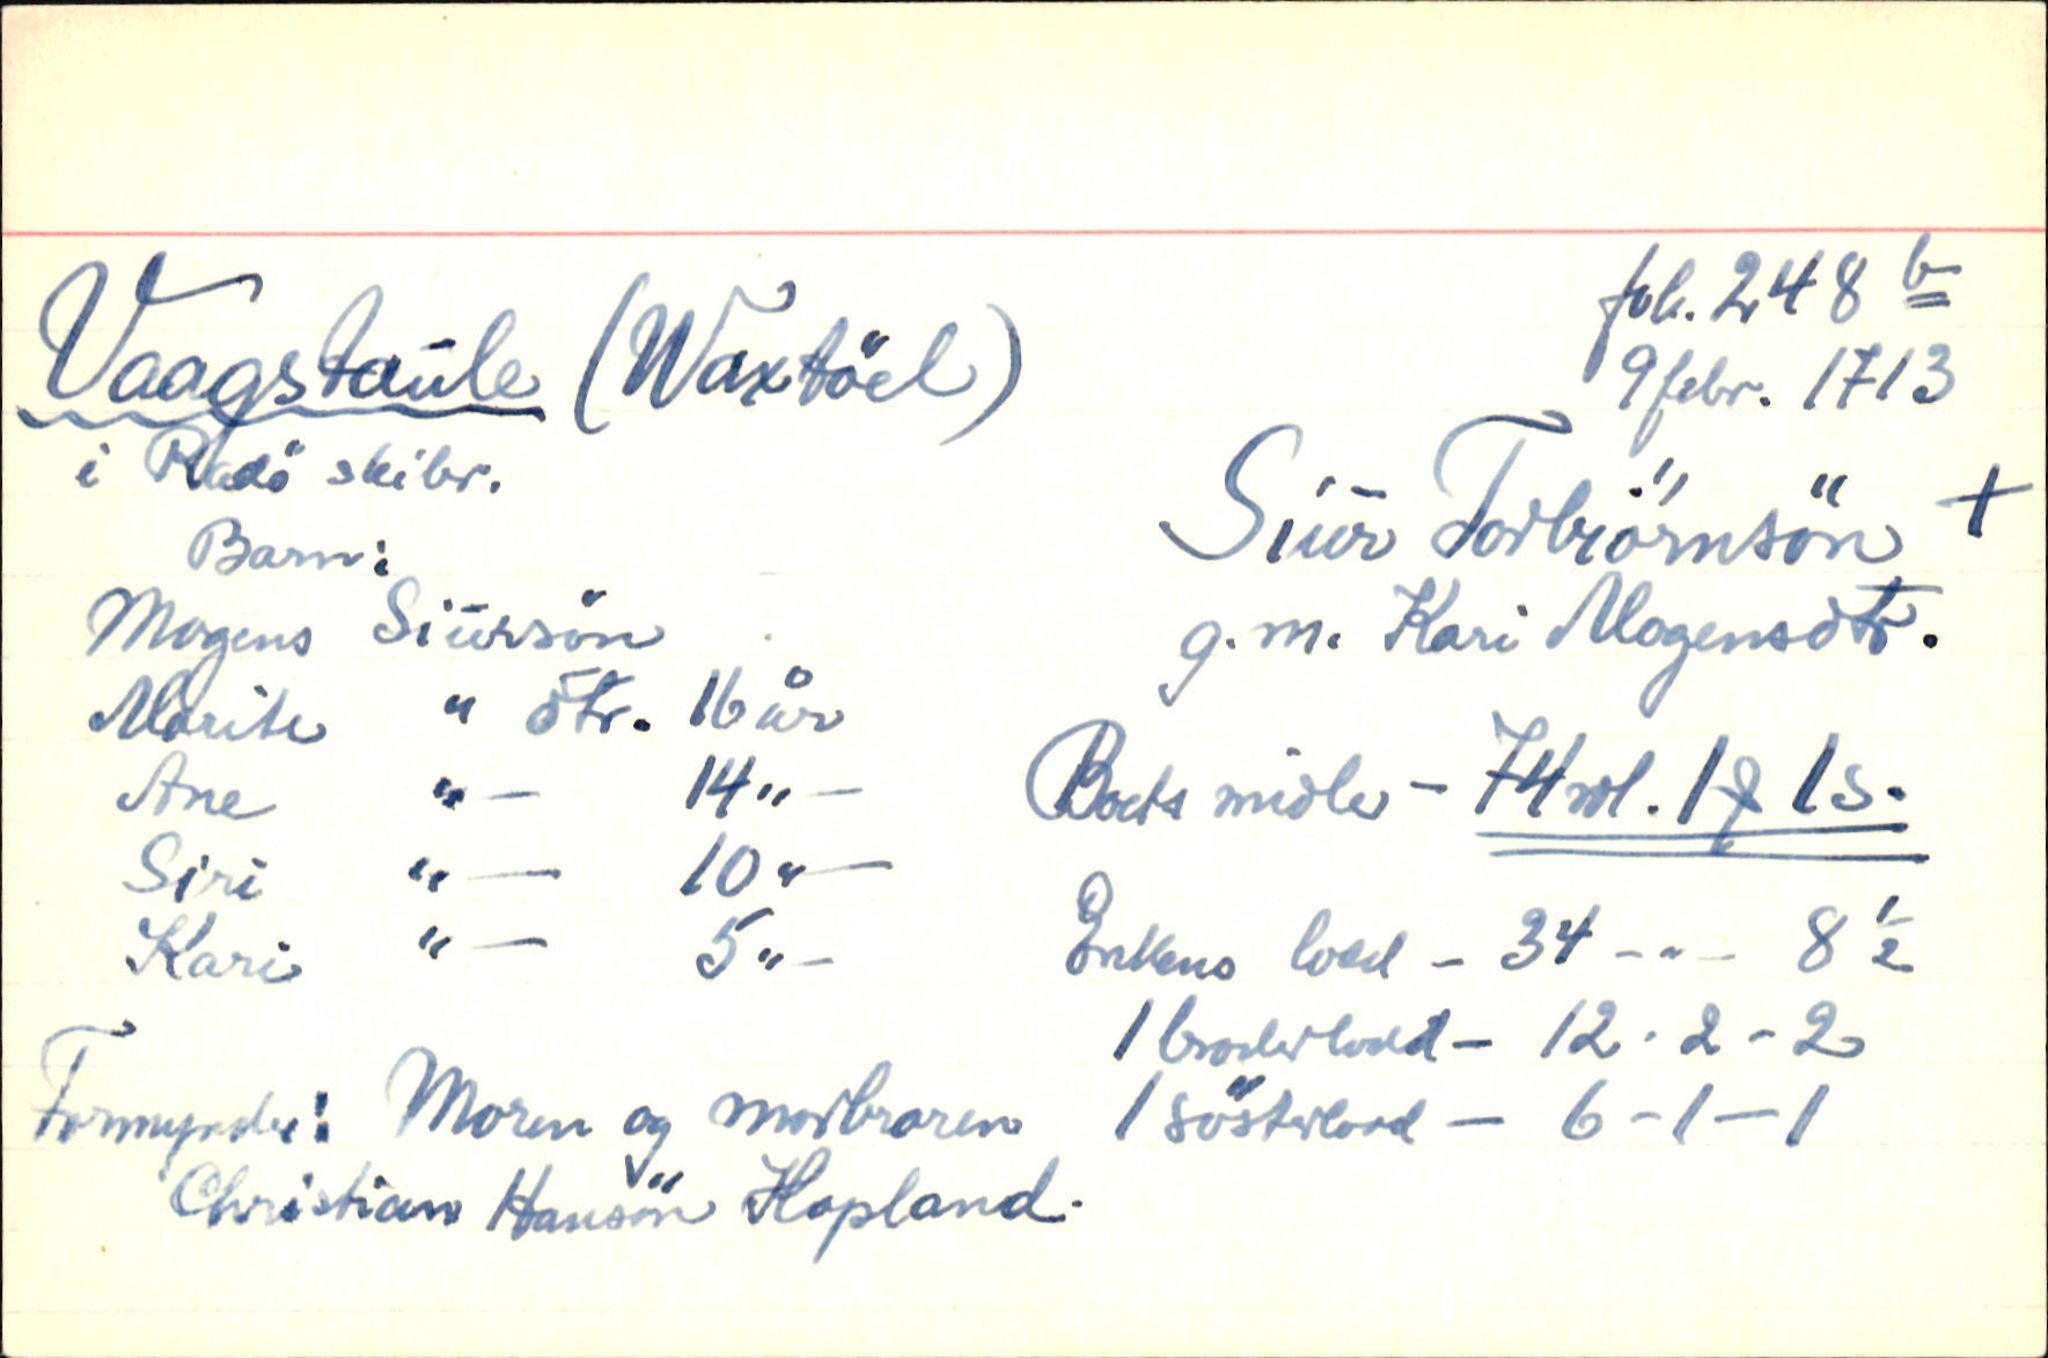 Vaagstaūle (Waxtöel)
i Radö skibr.
fol. 248 b
9 febr. 1713
Siūr Torbiörnsön +
g. m. Kari Mogensdtr.
Barn:
Mogens Siūrsön
Marite " dtr. 16 år
Ane " — 14 " —
Siri " — 10 " —
Kari " — 5 " —
Boets midler - 74 rdl. 1 ꝑ 1 s.
Enkens lodd - 34 - " - 8 1/2
1 broderlodd - 12 - 2 - 2
1 sösterlodd - 6 - 1 - 1
Formynder: Moren og morbroren
Christian Hansön Hopland.